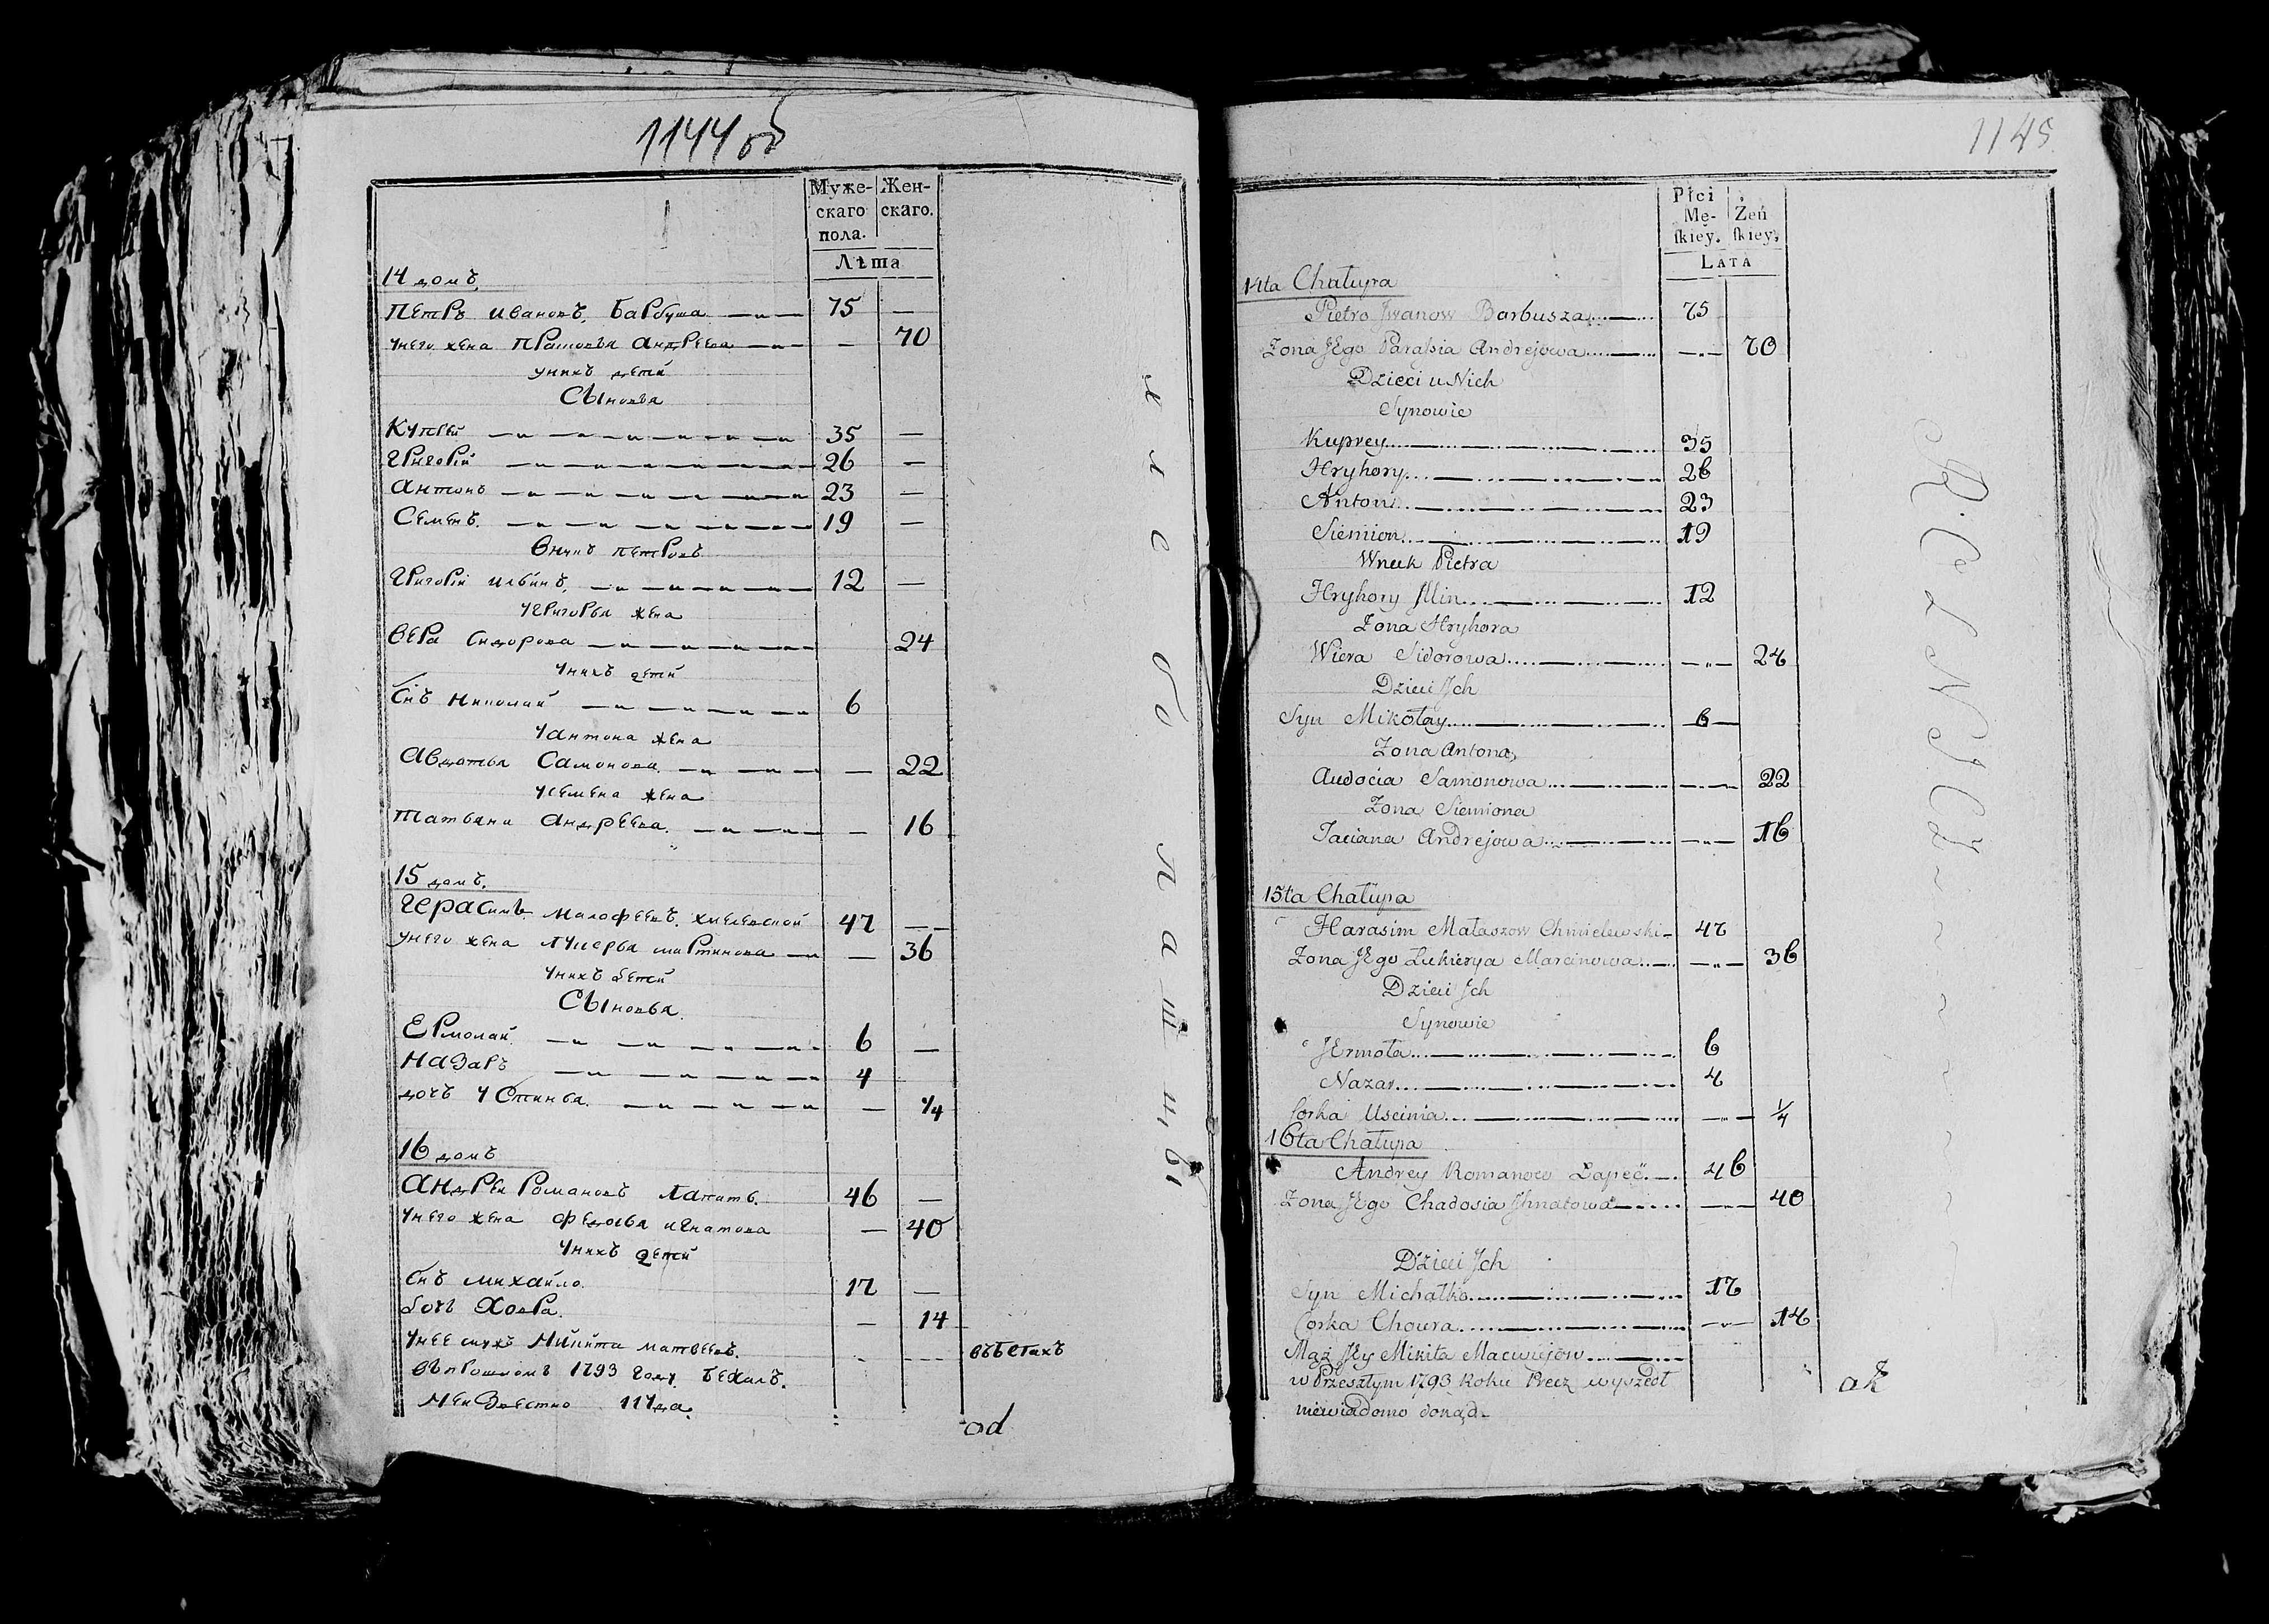 1144 об
Муже-
скаго
пола.
Жен-
скаго.
Лѣта
14 домъ.
Петръ Ивановъ Барбуша 75 —
унего жена Прасковья Андреева — 70
унихъ детей
Сыновья
Купрей 35 —
Григорій 26 —
Антонъ 23 —
Семенъ 19 —
Внукъ Петровъ
Григорій Ильинъ 12 —
у Григорья жена
Вера Сидорова 24
унихъ детей
Снъ Николай 6
у Антона жена
Авдотья Самонова — 22
у Семена жена
Татьяна Андреева — 16
15 домъ.
Герасимъ Малофеевъ Хмелевской 47 —
унего жена Лукерья Мартинова — 36
унихъ детей
Сыновья
Ермолай 6 —
Назаръ 4
дочь Устинья — 1/4
16 домъ
Андрей Романовъ Лапать 46 —
унего жена Федосья Игнатова — 40
унихъ детей
Снъ Михайло 17 —
дочь Ховра — 14
унее мужъ Микита Матвеевъ въбегахъ
въпрошломъ 1793 году
od
1145
Płci
Mę-
ſkiey.
Żeń
ſkiey.
LATA
14ta Chałupa
Pietro Jwanow Barbusza 75
Zona JEgo Paraſia Andrejowa 70
Dzieci u Nich
Synowie
Kuprey 35
Hryhory 26
Anton 23
Siemion 19
Wnuk Pietra
Hryhory Jllin 12
Zona Hryhora
Wiera Sidorowa 24
Dzieci Jch
Syn Mikołay 6
Zona Antona
Audocia Samonowa 22
Zona Siemiona
Taciana Andrejowa 16
15ta Chałupa
Harasim Małaszow Chmielewski 47
Zona JEgo Łukierya Marcinowa 36
Dzieci Jch
Synowie
JErmoła 6
Nazar 4
Corka Uscinia 1/4
16ta Chałupa
Andrey Romanow Łapeć 46
Zona JEgo Chadosia Jhnatowa 40
Dzieci Jch
Syn Michałko 17
Corka Chowra 14
Mąż JEy Mikita Macwiejow
w Przeszłym 1793 Roku Precz wyszedł
niewiadomo dokąd